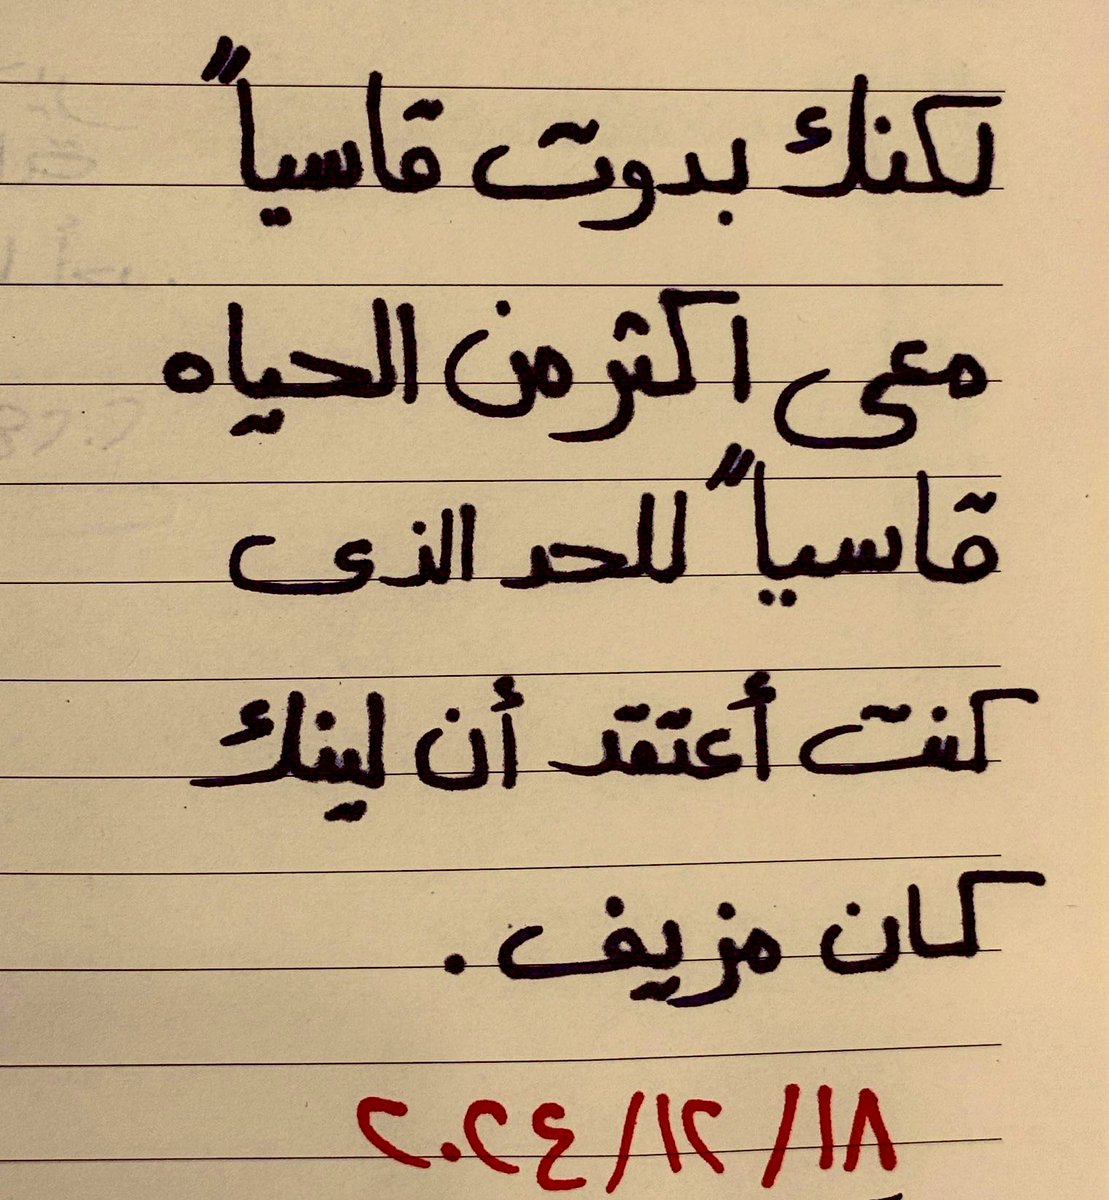 لكنك بدوت قاسياً
معى اكثر من الحياه
قاسياً للحد الذى
كنت أعتقد أن لينك
كان مزيف .
١٨/١٢/٢٠٢٤